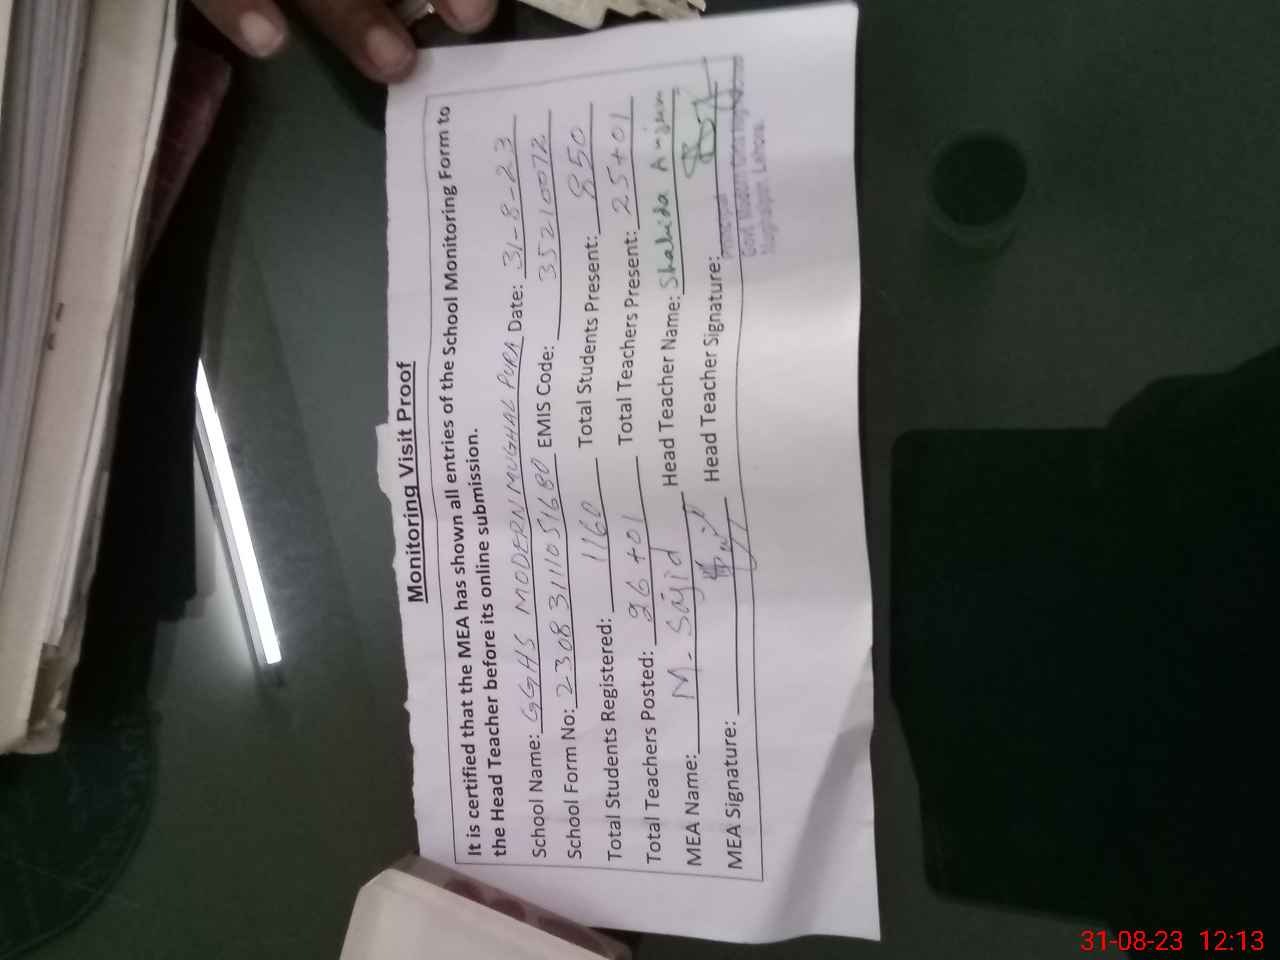 Monitoring Visit Proof
It is certified that the MEA has shown all entries of the School Monitoring Form to
the Head Teacher before its online submission.
School Name: GGHS MODERN MUGHAL PURA Date: 31-8-23
School Form No: 23083111051680 EMIS Code: 35210072
Total Students Registered: 1160 Total Students Present: 850
Total Teachers Posted: 26+01 Total Teachers Present: 25+01
MEA Name: M. Sajid Head Teacher Name: Shahida Anjum
MEA Signature: Head Teacher Signature:
Principal
Govt Modern Girls High
Mughalpura, Lahore.
31-08-23 12:13